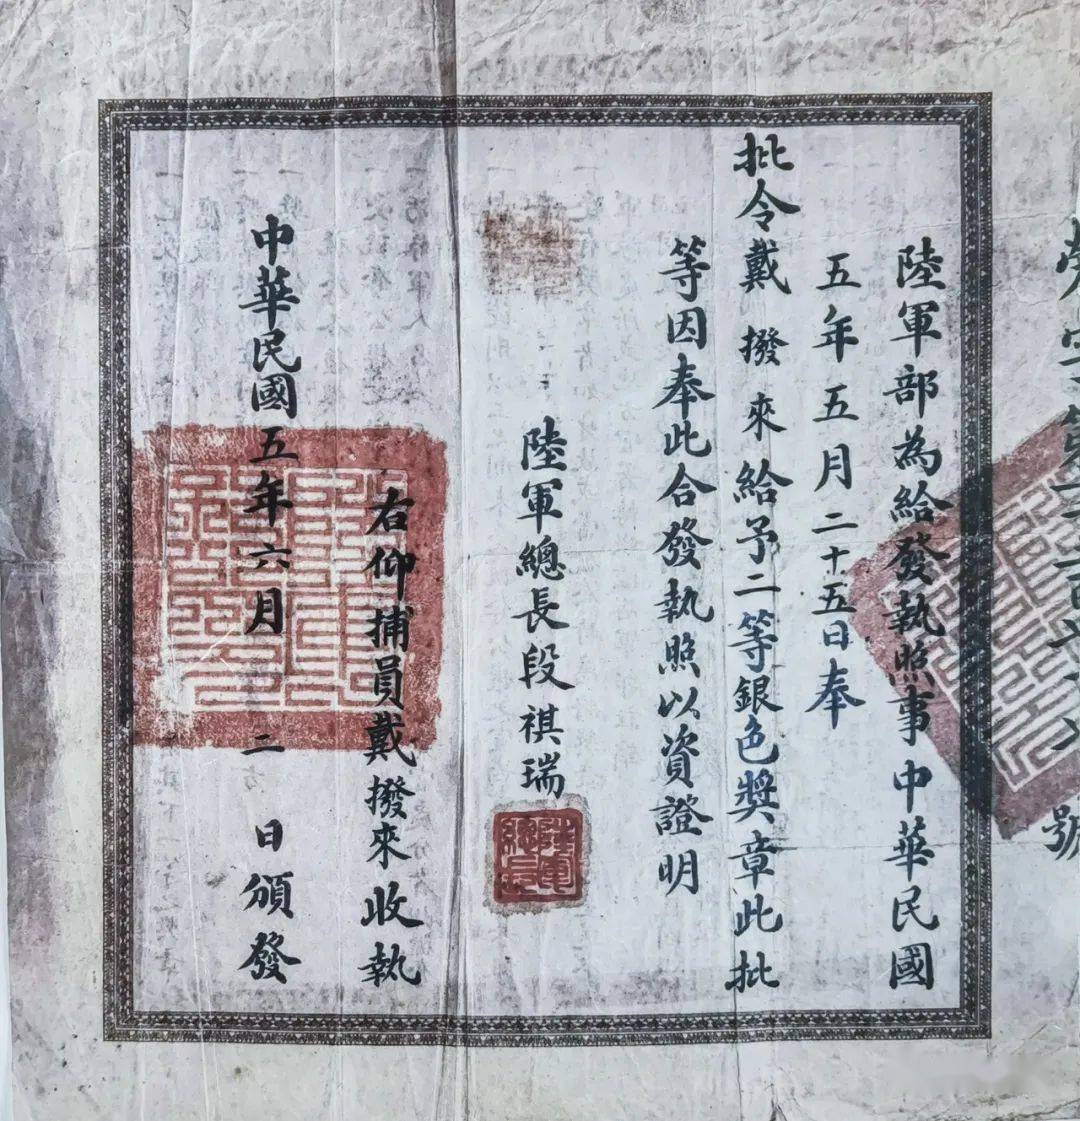 陸軍部為給發執照事中華民國
五年五月二十五日奉
批令戴撥來給予二等銀色獎章此批
等因奉此合發執照以資證明
陸軍總長段祺瑞
陸軍總長
右仰捕員戴撥來收執
中華民國五年六月二日頒發
號